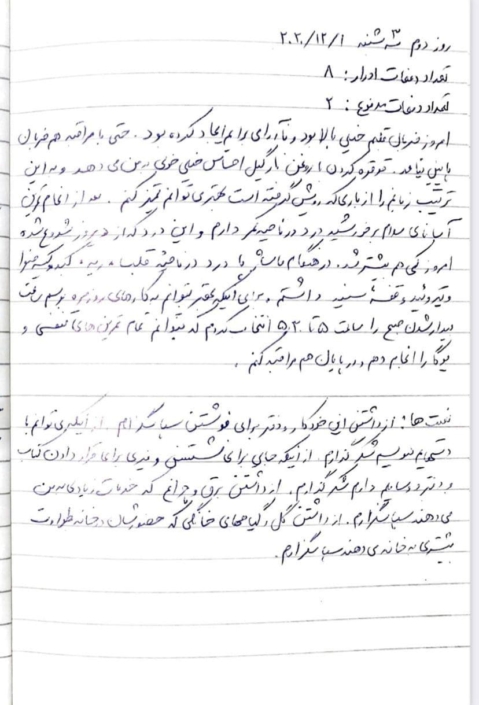 روز دوم سه شنبه ۲۰۲۰/۱۲/۱
تعداد دفعات ادرار: ۸
تعداد دفعات مدفوع: ۲
امروز ضربان قلبم خیلی بالا بود و ناآرامی برایم ایجاد کرده بود. حتی با مراقبه هم ضربان
پایین نیامد. قرقره کردن با روغن نارگیل احساس خیلی خوبی به من می دهد و به این
ترتیب زبانم را از باری که رویش گرفته است بهتر می توانم تمیز کنم. بعد از انجام تمرین
آسانای سلام بر خورشید درد در ناحیه کمر دارم و این درد که از دیروز شروع شده
امروز کمی هم بیشتر شد. در هنگام ماساژ پا درد در ناحیه قلب، ریه، کبد، کیسه صفرا
و تیروئید و قفسه سینه داشتم و برای اینکه بهتر بتوانم به کارهای روزمره برسم ساعت
بیدار شدن صبح را ساعت ۵ تا ۵:۳۰ انتخاب کردم که بتوانم تمام تمرین های تنفسی و
یوگا را انجام دهم و در پایان هم مراقبه کنم.
نعمت ها: از داشتن این خودکار و دفتر برای نوشتن سپاسگزارم. از اینکه می توانم با
دستهایم بنویسم شکرگذارم. از اینکه جایی برای نشستن و میزی برای قرار دادن کتاب
و دفتر و وسایلم دارم شکرگذارم. از داشتن برق و چراغ که خدمات زیادی به من
می دهند سپاسگزارم. از داشتن گل و گیاههای خانگی که حضورشان در خانه طراوت
بیشتری به خانه می دهند سپاسگزارم.